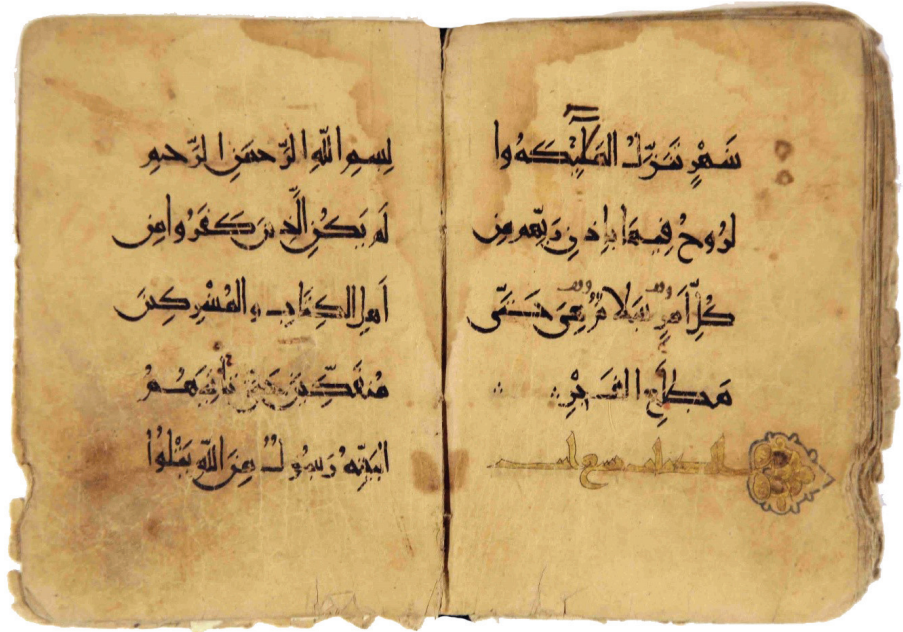 شَهْرٍ تَنَزَّلُ المَلَٰٓئِكَةُ وا
لرُوحُ فِيهَا بِإِذنِ رَبِّهِم مِن
كُلِّ أَمرٍ سَلَامٌ هِيَ حَتَّى
مَطلَعِ الفَجْرِ
بِسمِ اللهِ الرَّحمَنِ الرَّحِيمِ
لَم يَكُنِ الَّذِينَ كَفَرُوا مِن
أَهلِ الكِتَابِ والمُشْرِكِينَ
مُنفَكِّينَ حَتَّى تَأتِيَهُمُ
البَيِّنَةُ رَسُولٌ مِنَ اللهِ يَتْلُوا